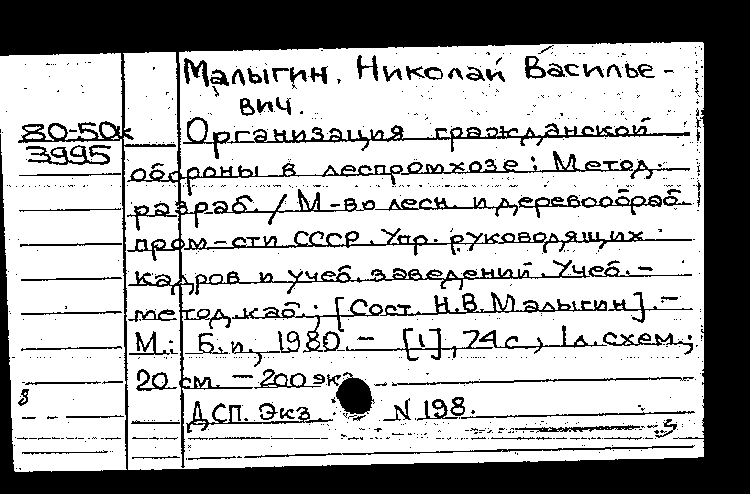 Малыгин, Николай Василье-
вич.
80-50к
3995
Организация гражданской
обороны в леспромхозе: Метод.
разраб. / М-во лесн. и деревообраб.
пром-сти СССР. Упр. руководящих
кадров и учеб. заведений. Учеб.-
метод. каб.; [Сост. Н.В. Малыгин]. -
М.: Б.и., 1980. - [1], 74 с., 1 л. схем.;
20 см. - 200 экз.
8
ДСП. Экз. N 198.